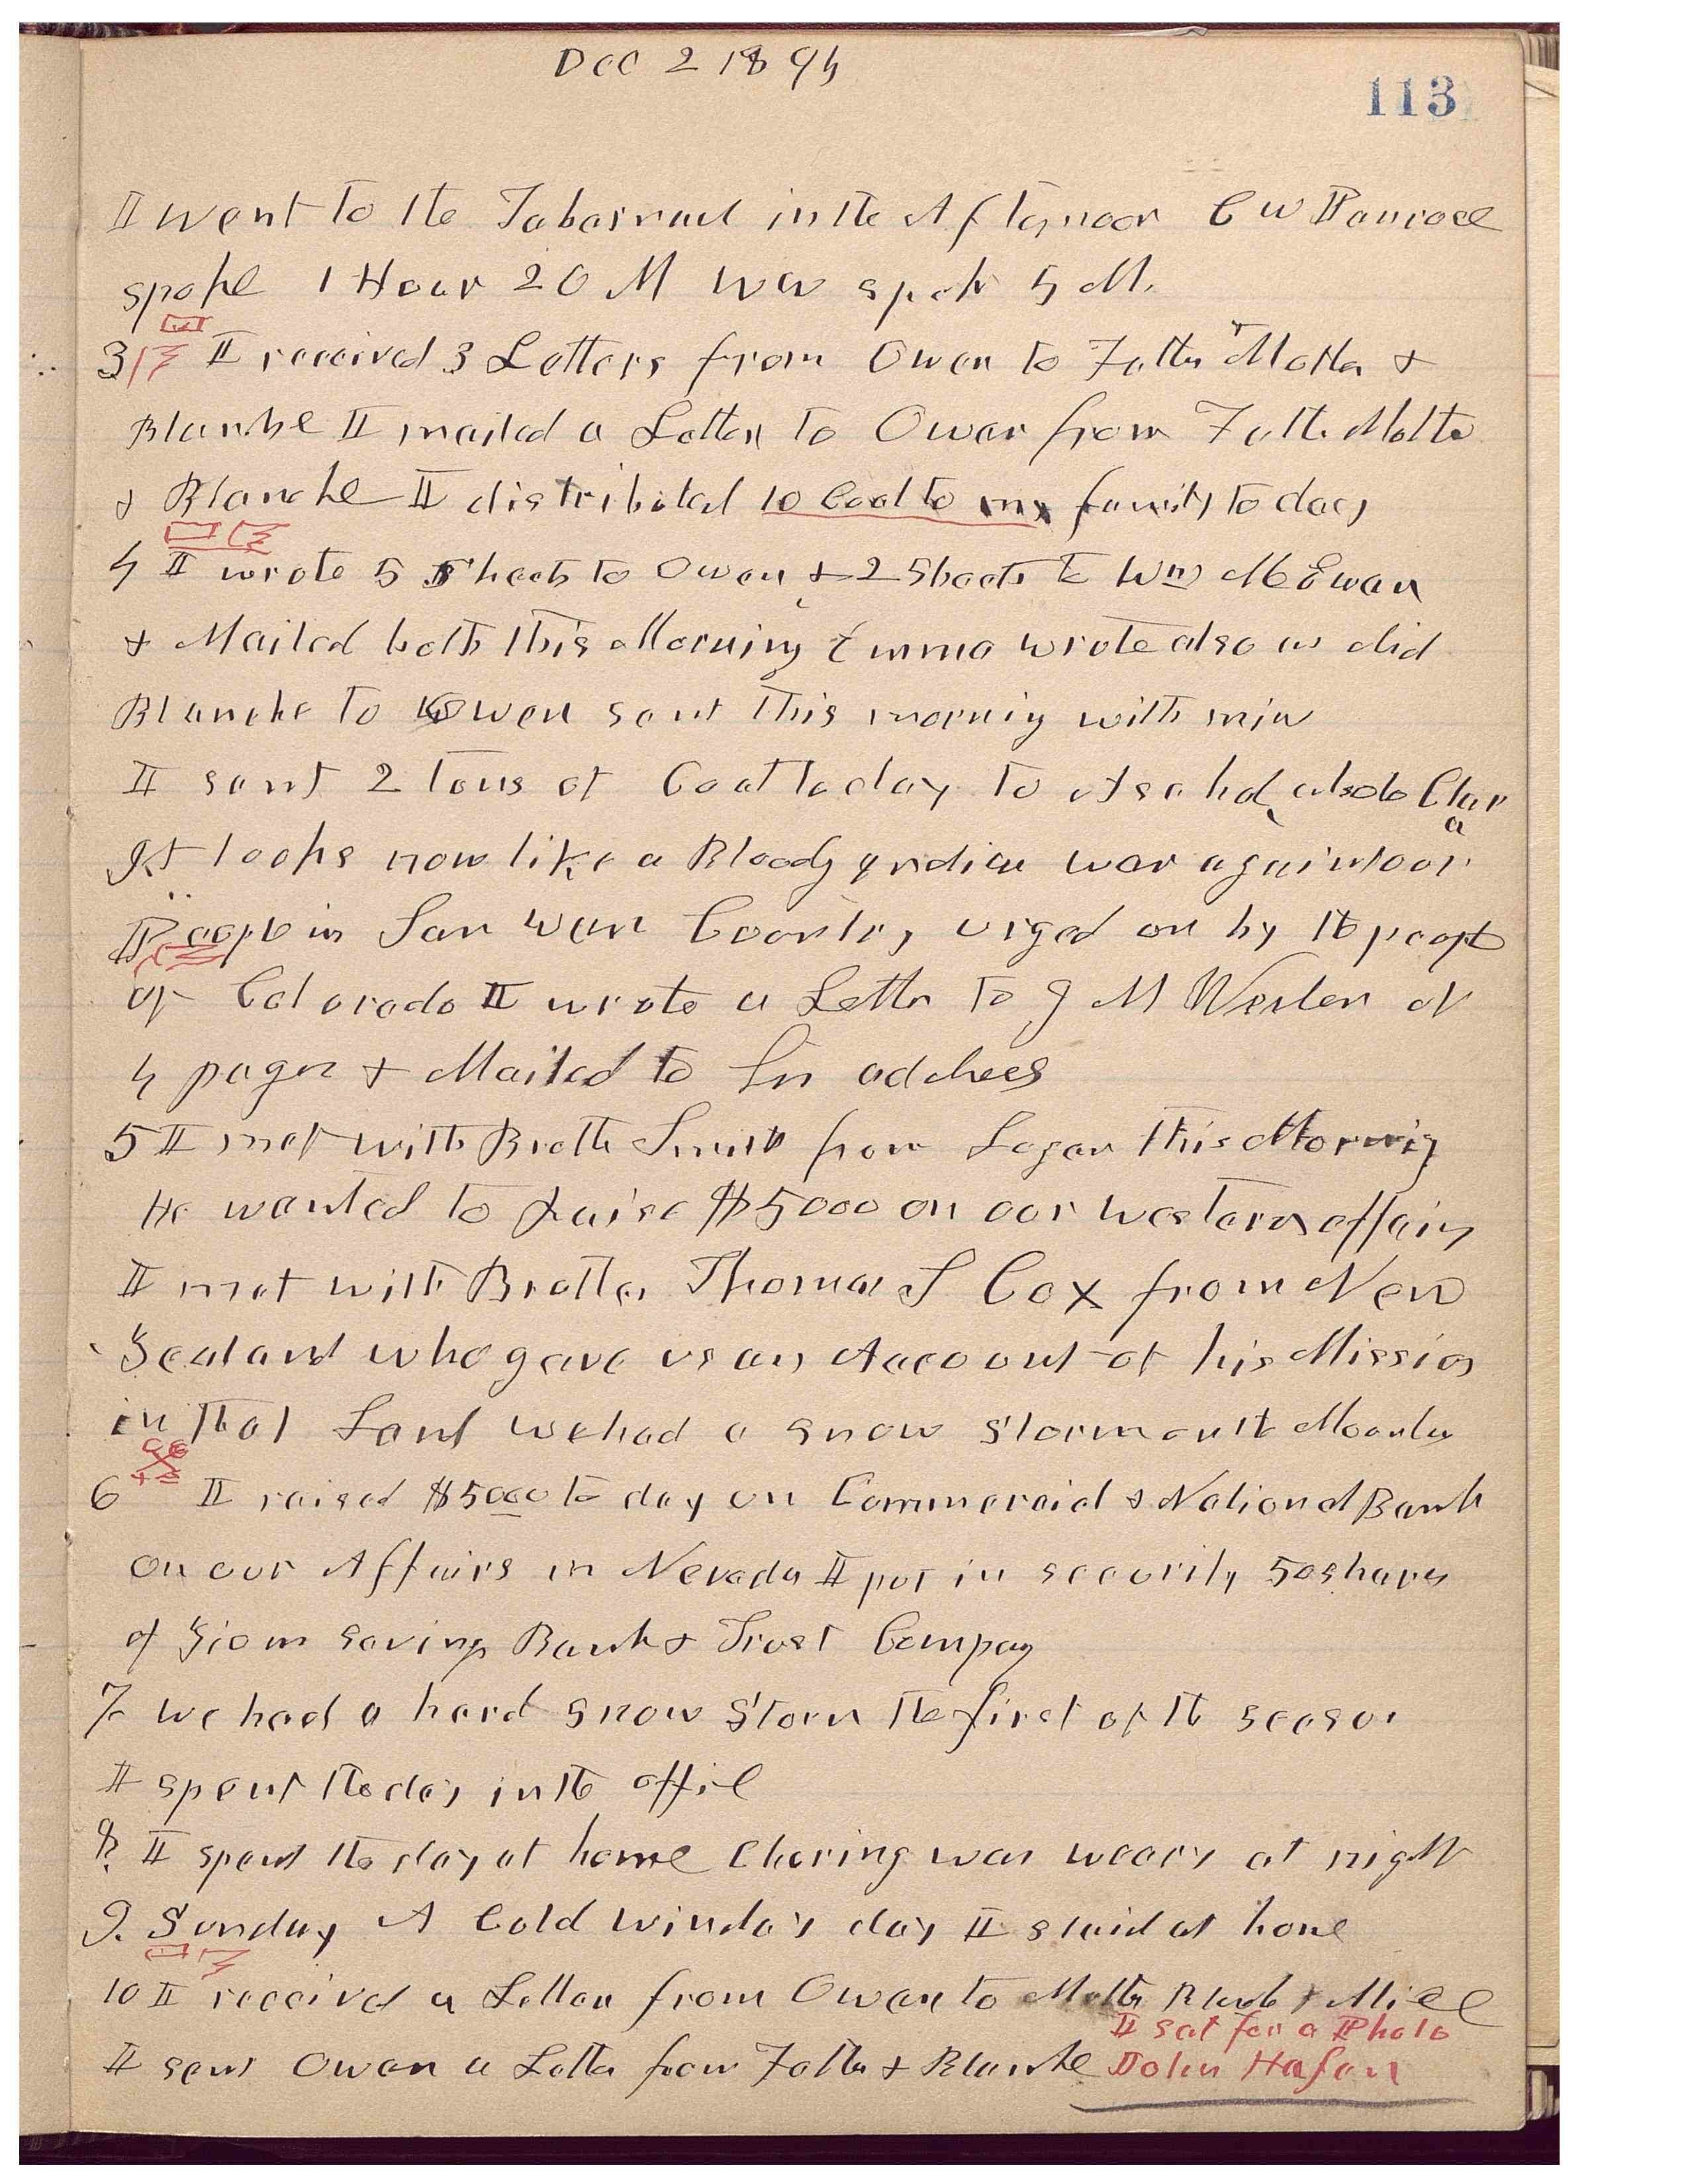 Dec 2 1894
113
I went to the Tabernacl in the Afternoon C W Panrose
spoke 1 Hour 20 M WW spok 5 M.
3 I received 3 Letters from Owen to Father Mother &
Blanche I mailed a Letter to Owen from Father Mother
& Blanche I distributed 10 Coal to my family to day
4 I wrote 5 Sheets to Owen & 2 Sheets to Wm McEwan
& Mailed both this Morning Emma wrote also as did
Blanche to Owen sent this morning with mine
I sent 2 tons of Coal to day to Asahel, also to Clara
It looks now like a Bloody Indian war against our
People in San Wan County urged on by the people
of Colorado I wrote a Letter to J M Weslen of
4 pages & Mailed to his address
5 I met with Brother Smith from Logan this Morning
He wanted to raise $5000 on our western affairs
I met with Brother Thomas S Cox from New
Zealand who gave us an Account of his Mission
in that Land we had a snow storm on the Mountains
6 I raised $5000 to day on Commercial & National Bank
on our Affairs in Nevada I put in security 50 shares
of Zions Savings Bank & Trust Company
7 we had a hard snow storm the first of the season
I spent the day in the office
8. I spent the day at home choring was weary at night
9. Sunday A Cold windy day I staid at home
10 I received a Letter from Owen to Mother Blanch & Alice
I sat for a Photo
I sent Owen a Letter from Father & Blanche John Hafen